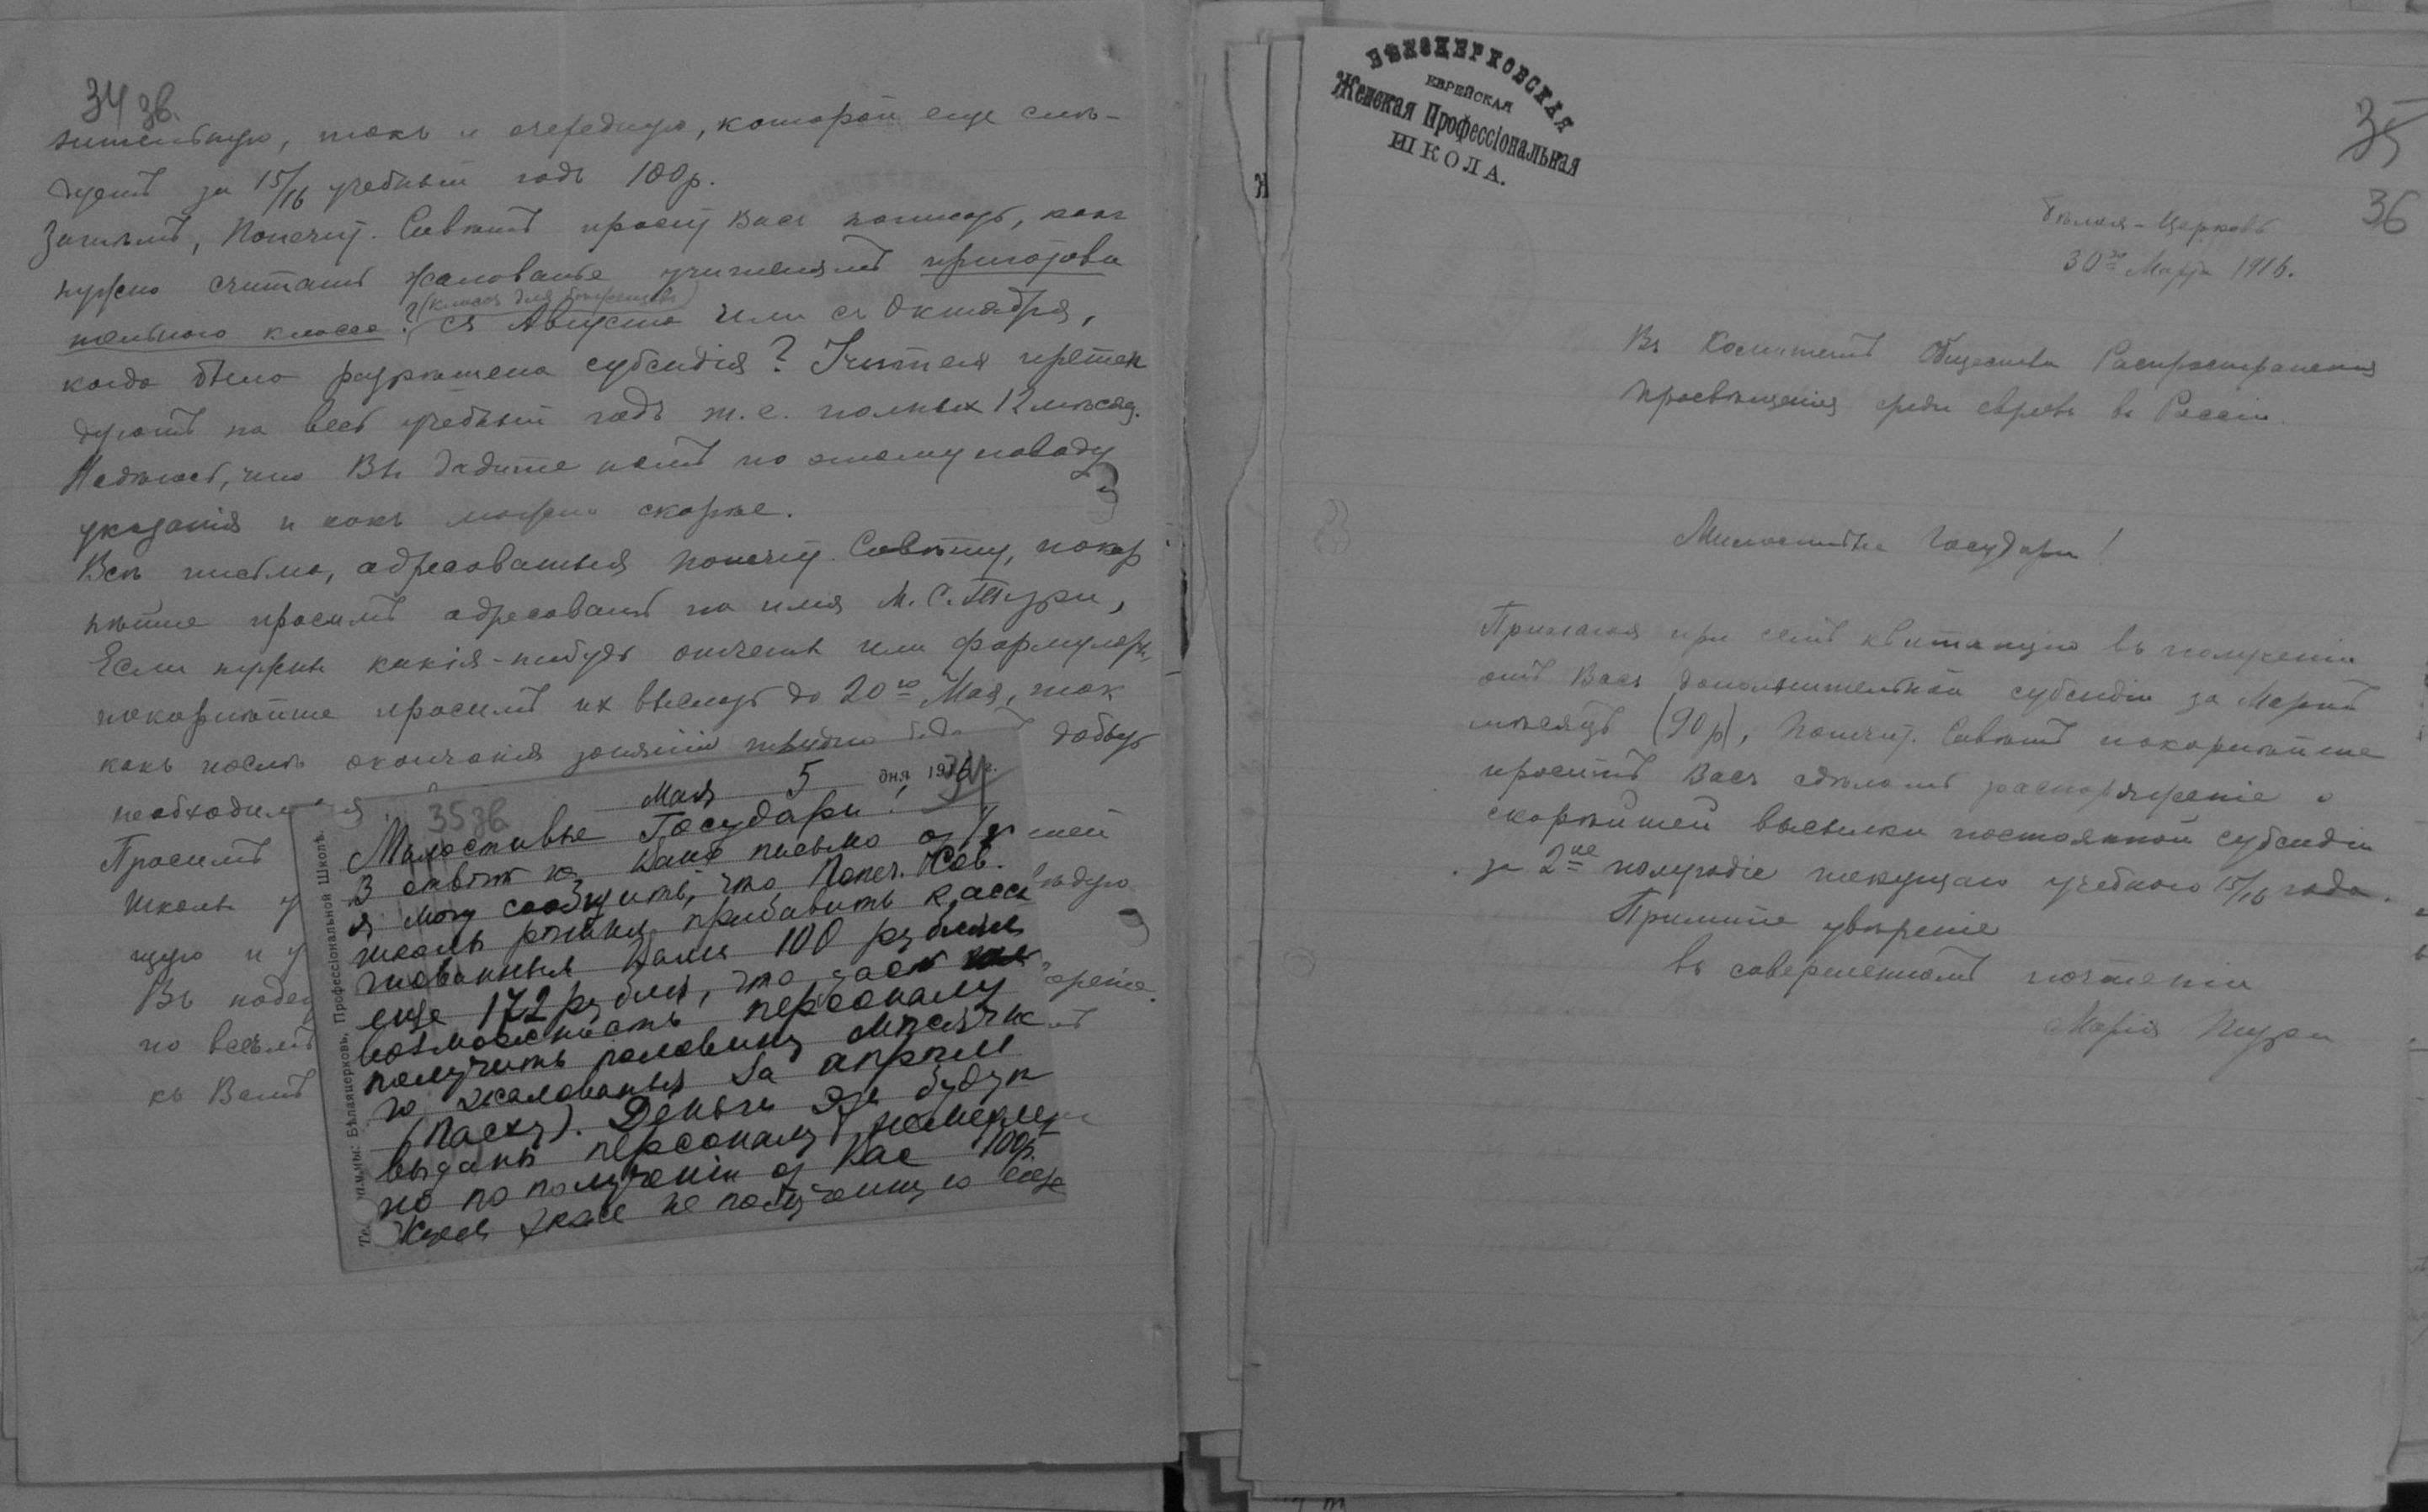 34 зв.
нительную, такъ и очередную, которой еще слѣ-
дуетъ за 15/16 учебный годъ 100р.
Затѣмъ, Попечит. Совѣтъ просит Васъ написать, какъ
нужно считать жалованье учителямъ приготови
тельного класса? (классъ для бѣженцевъ)
съ Августа или съ Октября,
когда была разрѣшена субсидія? Учителя претен
дуютъ на весь учебный годъ т.е. полных 12 мѣсяц.
Надѣюсь, что Вы дадите намъ по этому поводу
указанія и какъ можно скорѣе.
Всѣ письма, адресованныя Попечит. Совѣту, покор
нѣйше просимъ адресовать на имя М. С.
Если нужны какія-нибудь отчеты или формуляры,
покорнѣйше просимъ их выслать до 20го Мая, так
какъ послѣ окончанія занятій трудно добыть
необходим
Просимъ
Школы у
щую и у
Въ надеж
по всѣмъ
къ Вамъ
35 зв.
Мая 5 дня 1916 г.
34
Милостивые Государи!
В отвѣт на Ваше письмо от
я могу сообщить, что Попеч. Сов.
школы рѣшил прибавить к ассиг
нованным Вами 100 рублям
еще 172 рубля, что даст
возможность персоналу
получить половину мѣсячна
го жалованья за апрѣль
(Пасху). Деньги эти будут
выданы персоналу немедлен
но по полученіи от Вас 100р.
еще
Бѣлаяцерковь, Профессіональной Школѣ.
БѢЛОЦЕРКОВСКАЯ
ЕВРЕЙСКАЯ
Женская Профессіональная
ШКОЛА.
35
36
Бѣлая-Церковь
30го Марта 1916.
Въ Комитетъ Общества Распространенія
Просвѣщенія среди евреевъ въ Россіи.
Милостивые Государи!
Прилагая при семъ квитанцію въ полученіи
отъ Васъ дополнительной субсидіи за Мартъ
мѣсяцъ (90р), Попечит. Совѣтъ покорнѣйше
проситъ Васъ сдѣлать распоряженіе о
скорѣйшей высылки постоянной субсидіи
за 2ое полугодіе текущаго учебного 15/16 года.
Примите увѣреніе
въ совершенномъ почтеніи
Марія